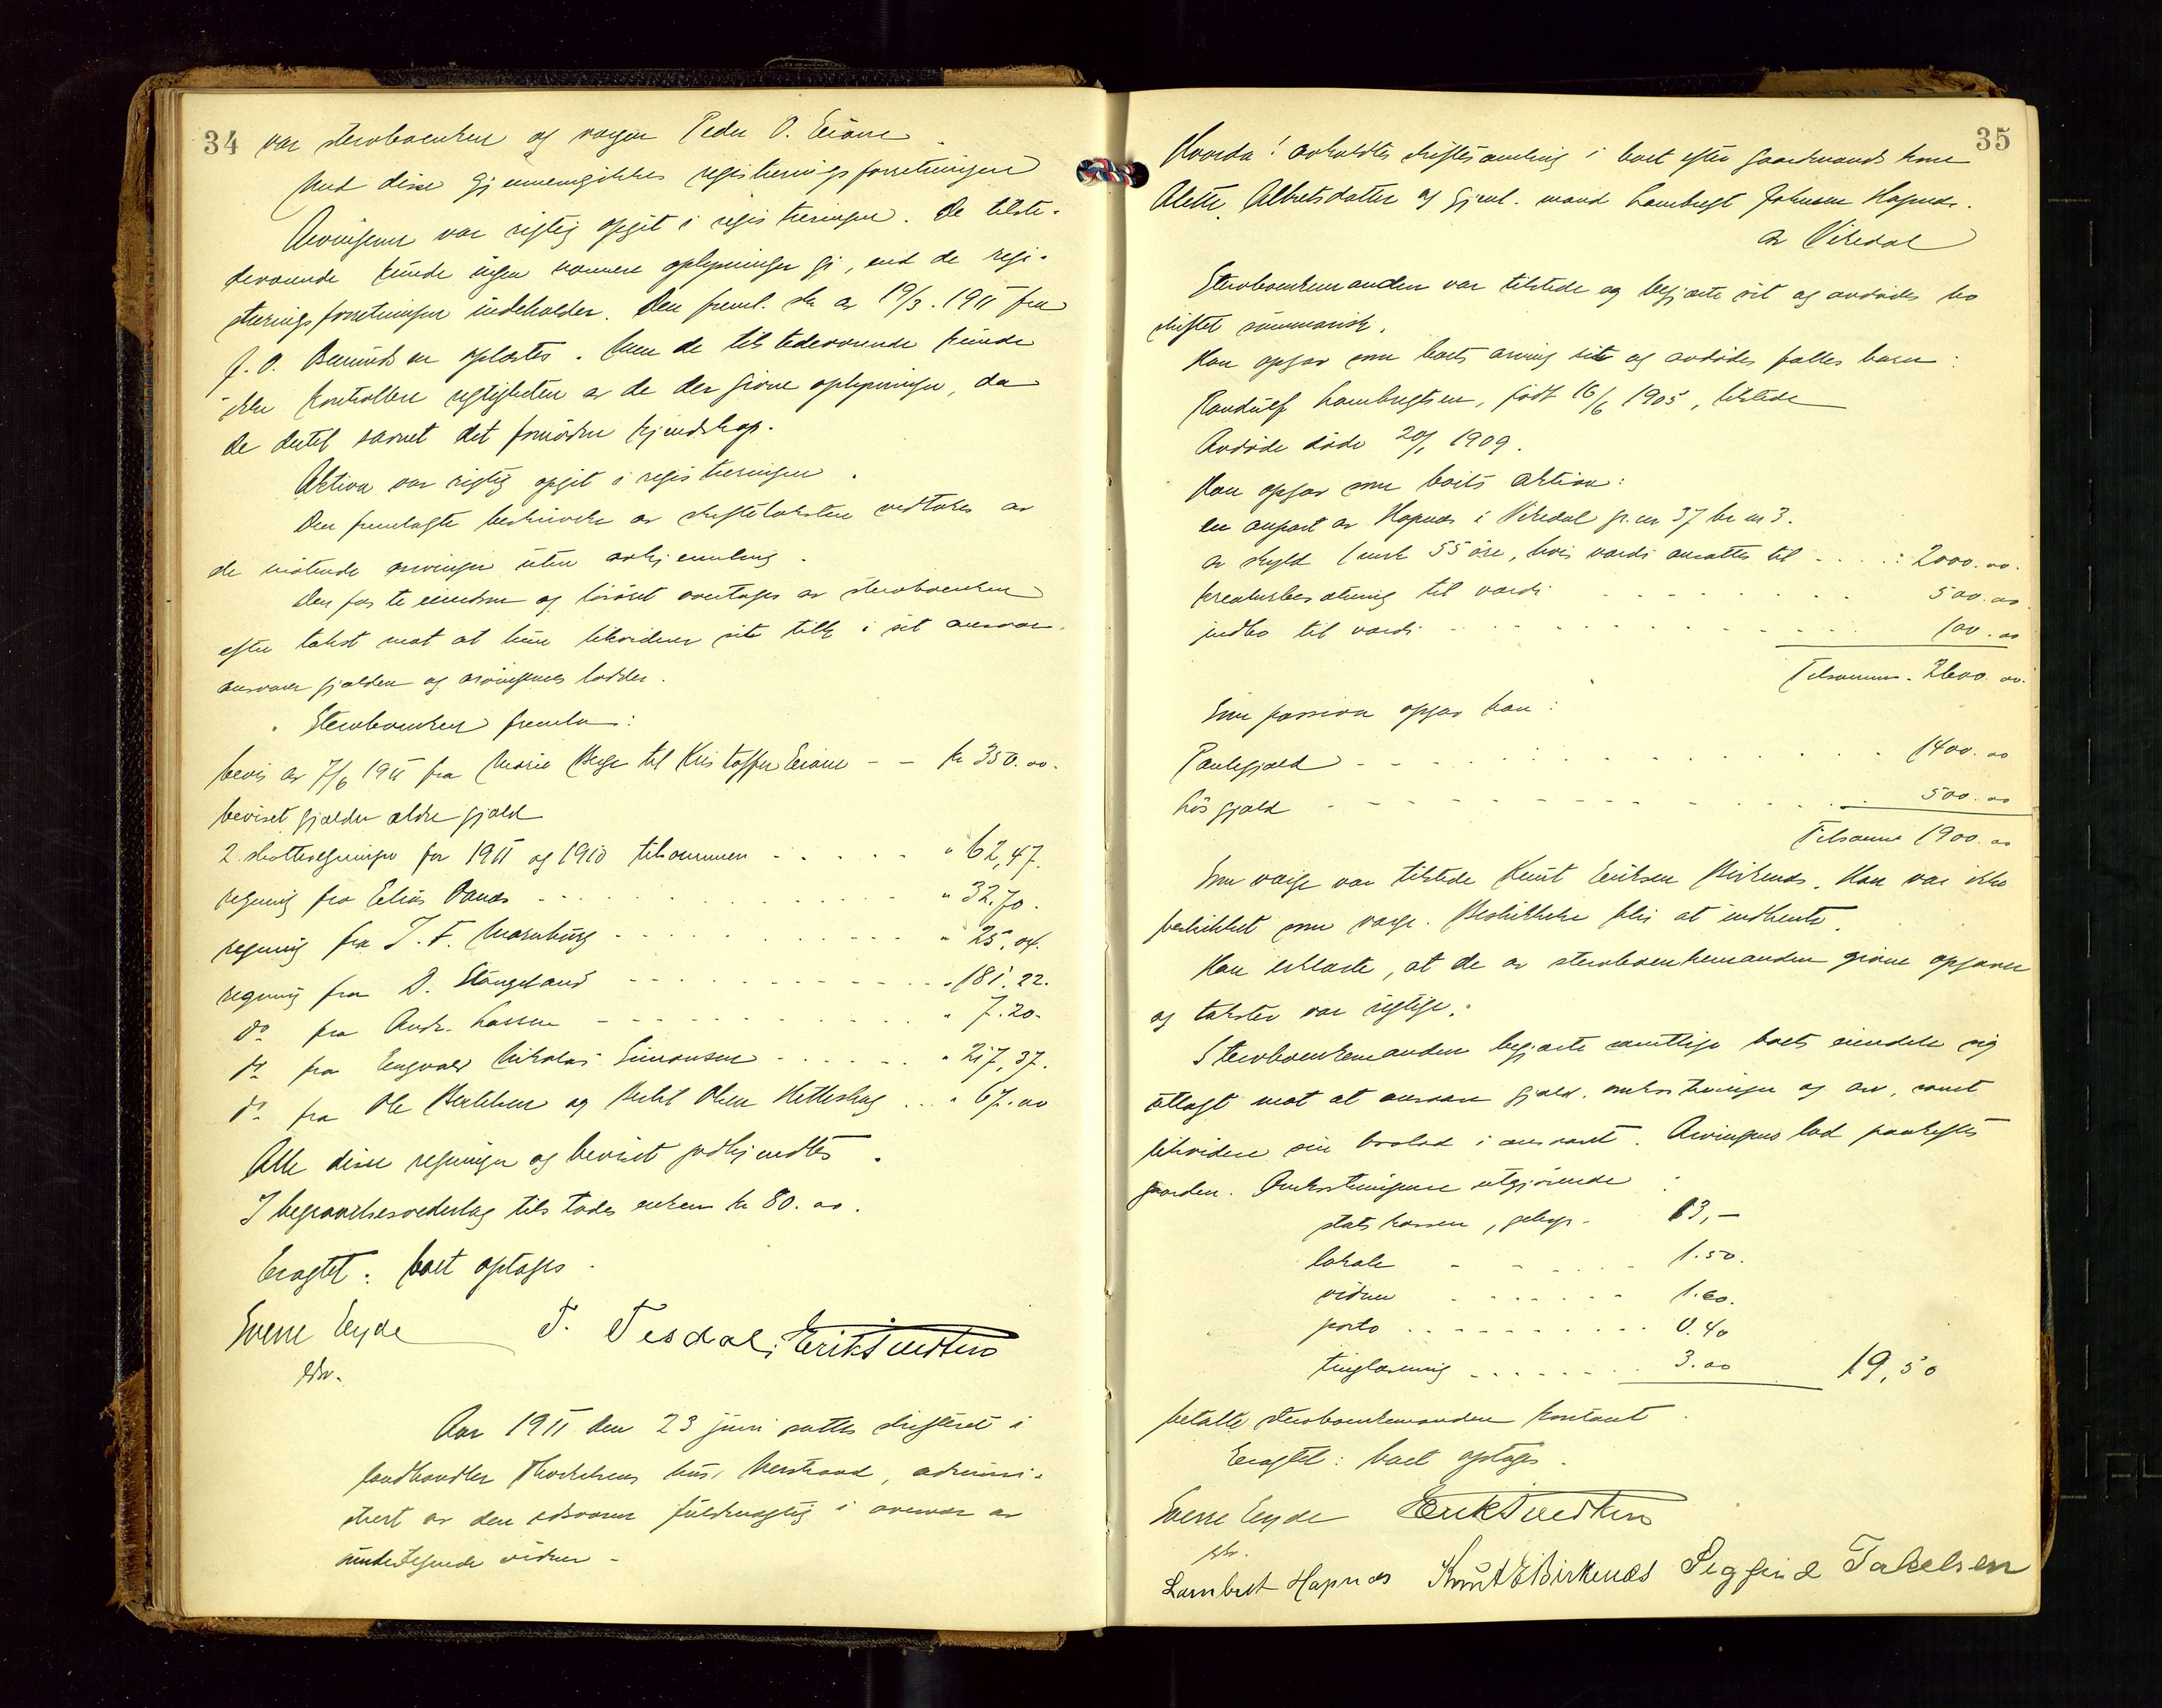 34
var sterboenken og vergen Peder O. Eriane
Med disse gjennemgikkes registreringsforretningen
Arvingerne var rigtig opgit i registreringen. De tilste-
deværende kunde ingen nærmere oplysninger gi, end de regi-
streringsforretningen indeholder. Den freml. skr av 19/3. 1911 fra
J. O. oplæstes. Men de tilstedeværende kunde
ikke kontrollere rigtigheten av de der givne oplysninger, da
de dertil savnet det fornødne kjendskap.
Aktiva var rigtig opgit i registreringen.
Den fremlagte beskrivelse av skiftetaksten vedtokes av
de møtende arvinger uten avhjemling.
Den faste eiendom og løsøret overtages av sterboenken
efter takst mot at hun likviderer sit tilk i sit ansvar
ansvarer gjælden og arvingernes lodder.
Sterboenken fremla:
bevis av 7/6 1911 fra Marie Berge til Kristoffer Eriane - - kr 350.00.
beviset gjælder ældre gjæld
2 skatteregninger for 1911 og 1910 tilsammen - - - - - " 62,47.
regning fra Elias Vanås - - - - " 32.70.
regning fra J. F. Mærnburg - - - - " 25.04.
regning fra A. Stangeland - - - - " 181.22.
do fra Andr. Larsen - - - - " 7.20.
do fra Engvald Nikolai Simonsen - - - - " 217,37.
do fra Ole Bertelsen og Bertel Olsen Hetteskog - - - " 67.00
Alle disse regninger og beviset godkjendtes.
I begravelsesvederlag tilstodes enken kr 80.00.
Eragtet: boet optages.
Sverre Eyde T. Tesdal. Erik Tuedten
edsv.
Aar 1911 den 23 juni sattes skifteret i
landhandler Thorkelsens hus, Nerstrand, admini-
strert av den edsvorne fuldmægtig i overvær av
undertegnede vidner -
35
Hvorda: avholdtes skiftesamling i boet efter gaardmands kone
Alette Albretsdatter og gjenl. mand Lambregt Johnsen Hapnes.
av Vikedal
Sterboenkemanden var tilstede og begjærte sit og avdødes bo
skiftet summarisk.
Han opgav som boets arving sit og avdødes fælles barn:
Randulf Lambregtsen, født 16/6 1905, tilstede
Avdøde døde 20/1 1909.
Han opgav som boets aktiva:
en anpart av Hapnes i Vikedal gr. nr 37 br nr 3.
av skyld 1 mrk 55 øre, hvis værdi ansattes til - - - : 2000.00.
kreaturbesætning til værdi - - - - 500.00.
indbo til værdi - - - - 100.00
Tilsammen - 2600.00.
Som passiva opgav han:
Pantegjæld - - - - 1400.00
Løs gjæld - - - - 500.00
Tilsammen 1900.00
Som verge var tilstede Knut Eriksen Birkenes. Han var ikke
beskikket som verge. Beskikkelse blir at indhente.
Han erklærte, at de av sterboenkemanden givne opgaver
og takster var rigtige.
Sterboenkemanden begjærte samtlige boets eiendele sig
utlagt mot at ansvare gjæld, omkostninger og arv, samt
likvidere sin boslod i ansvaret. Arvingens lod panthæftes
gaarden. Omkostningene utgjørende:
statskassen, gebyr - 13,-
lokale - - - - 1.50.
vidner - - - - 1.60.
porto - - - - 0.40
tinglæsning - - - - 3.00 19,50
betalte sterboenkemanden kontant.
Eragtet: boet optages.
Sverre Eyde Erik Tuedten
edsv.
Lambert Hapnes Knut E Birkenes Sigfrid Takelsen